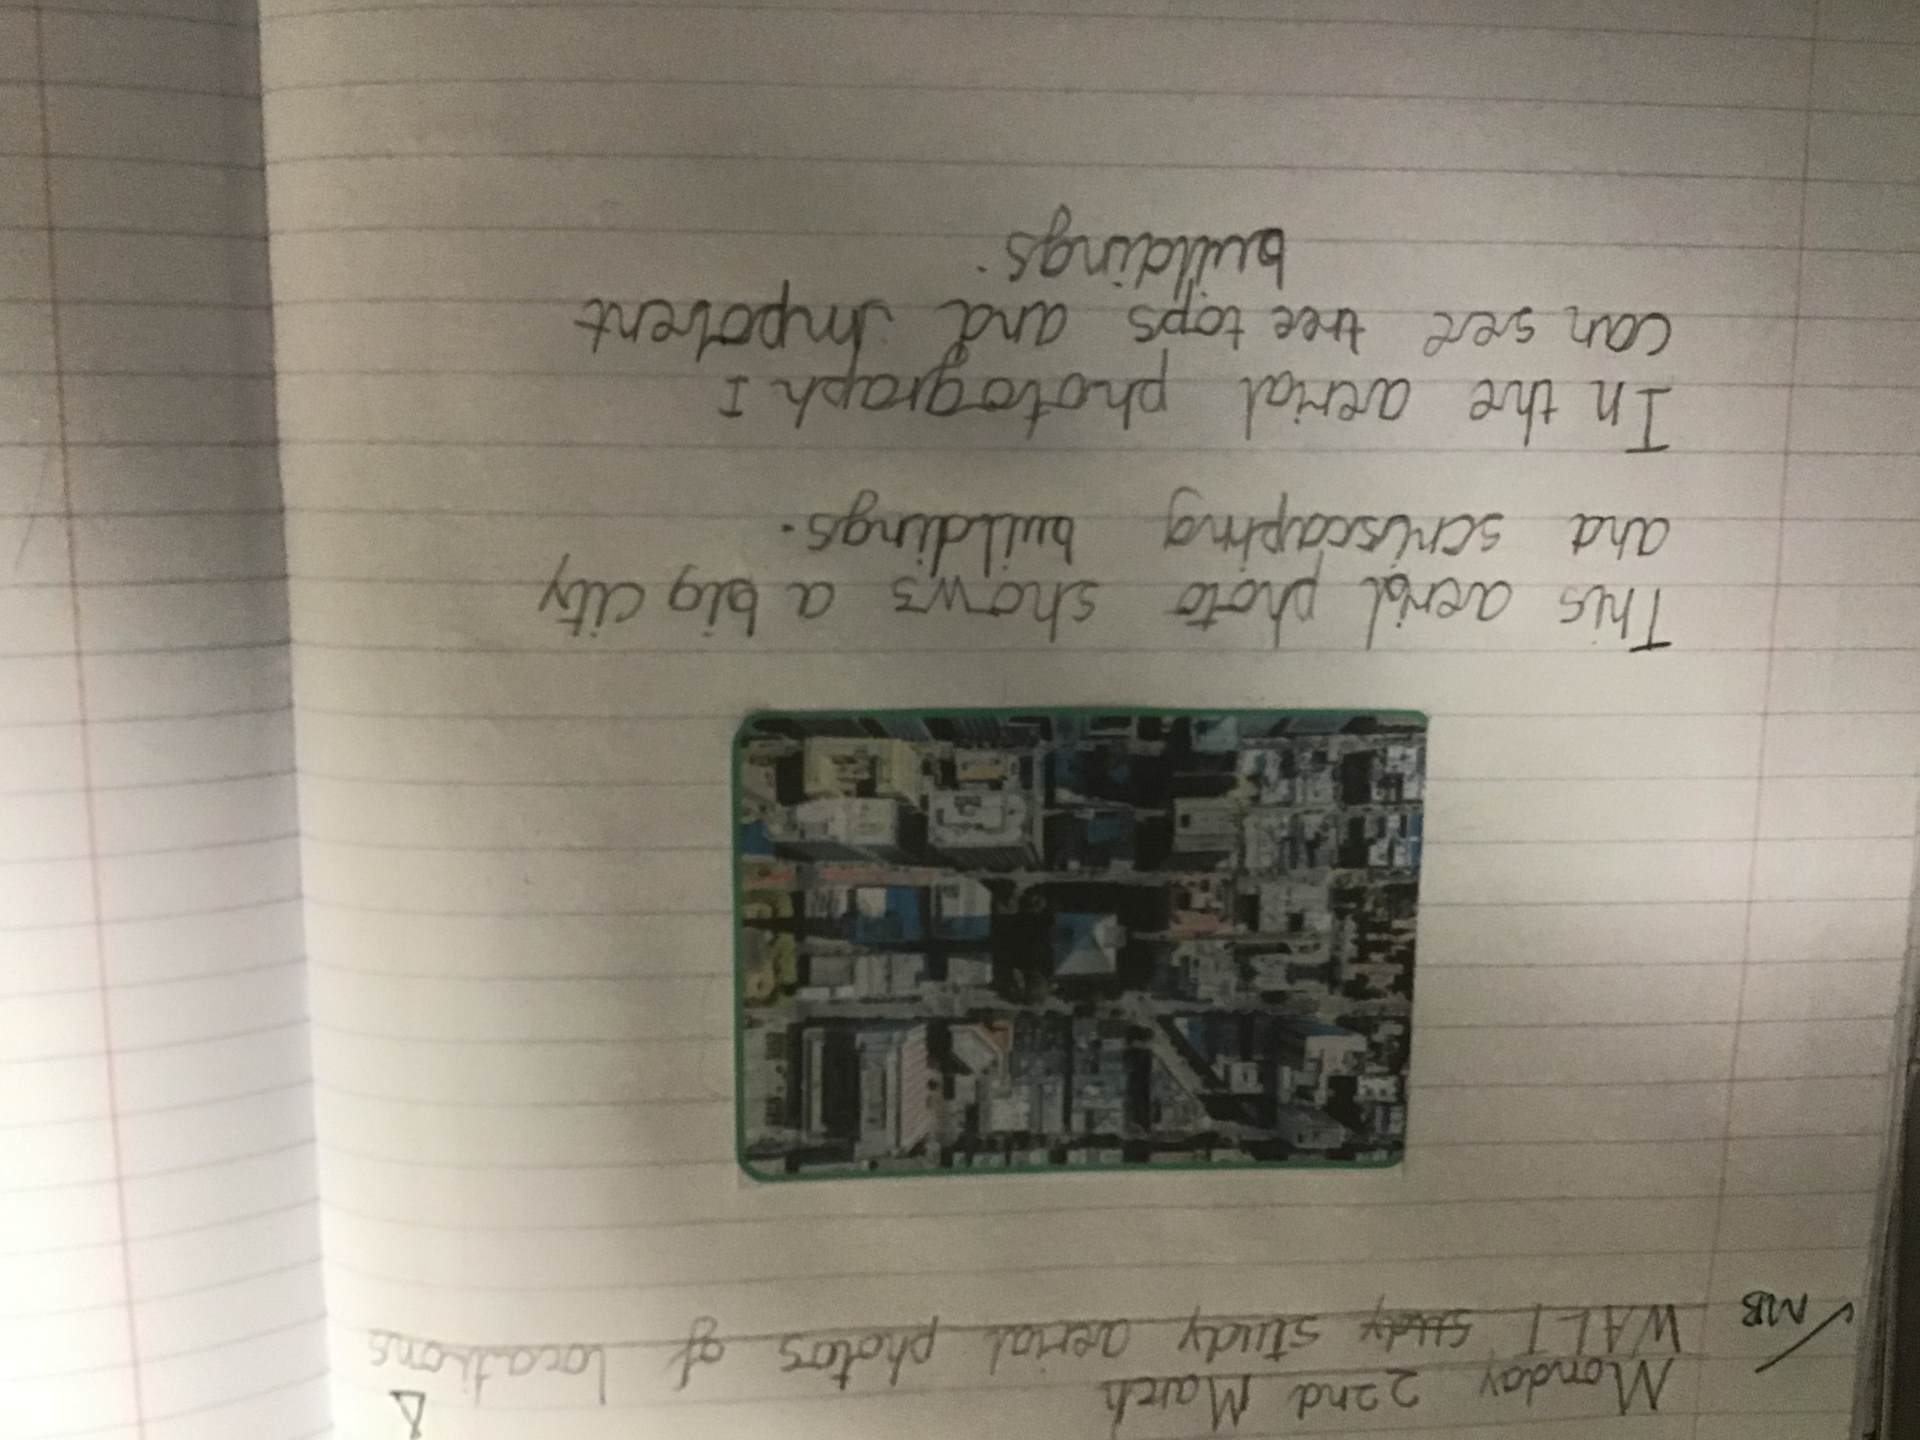 Monday 22nd March
WALT study study aerial photos of locations
MB
This aeriol photo shows a big city
and scriscaping buildings.
In the aerial photograph I
can see tree tops and impotent
buildings.